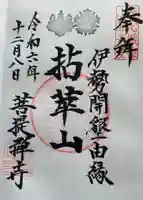 奉拝
伊勢開鎮由縁
拈華山
菩提禅寺
令和六年
十二月八日